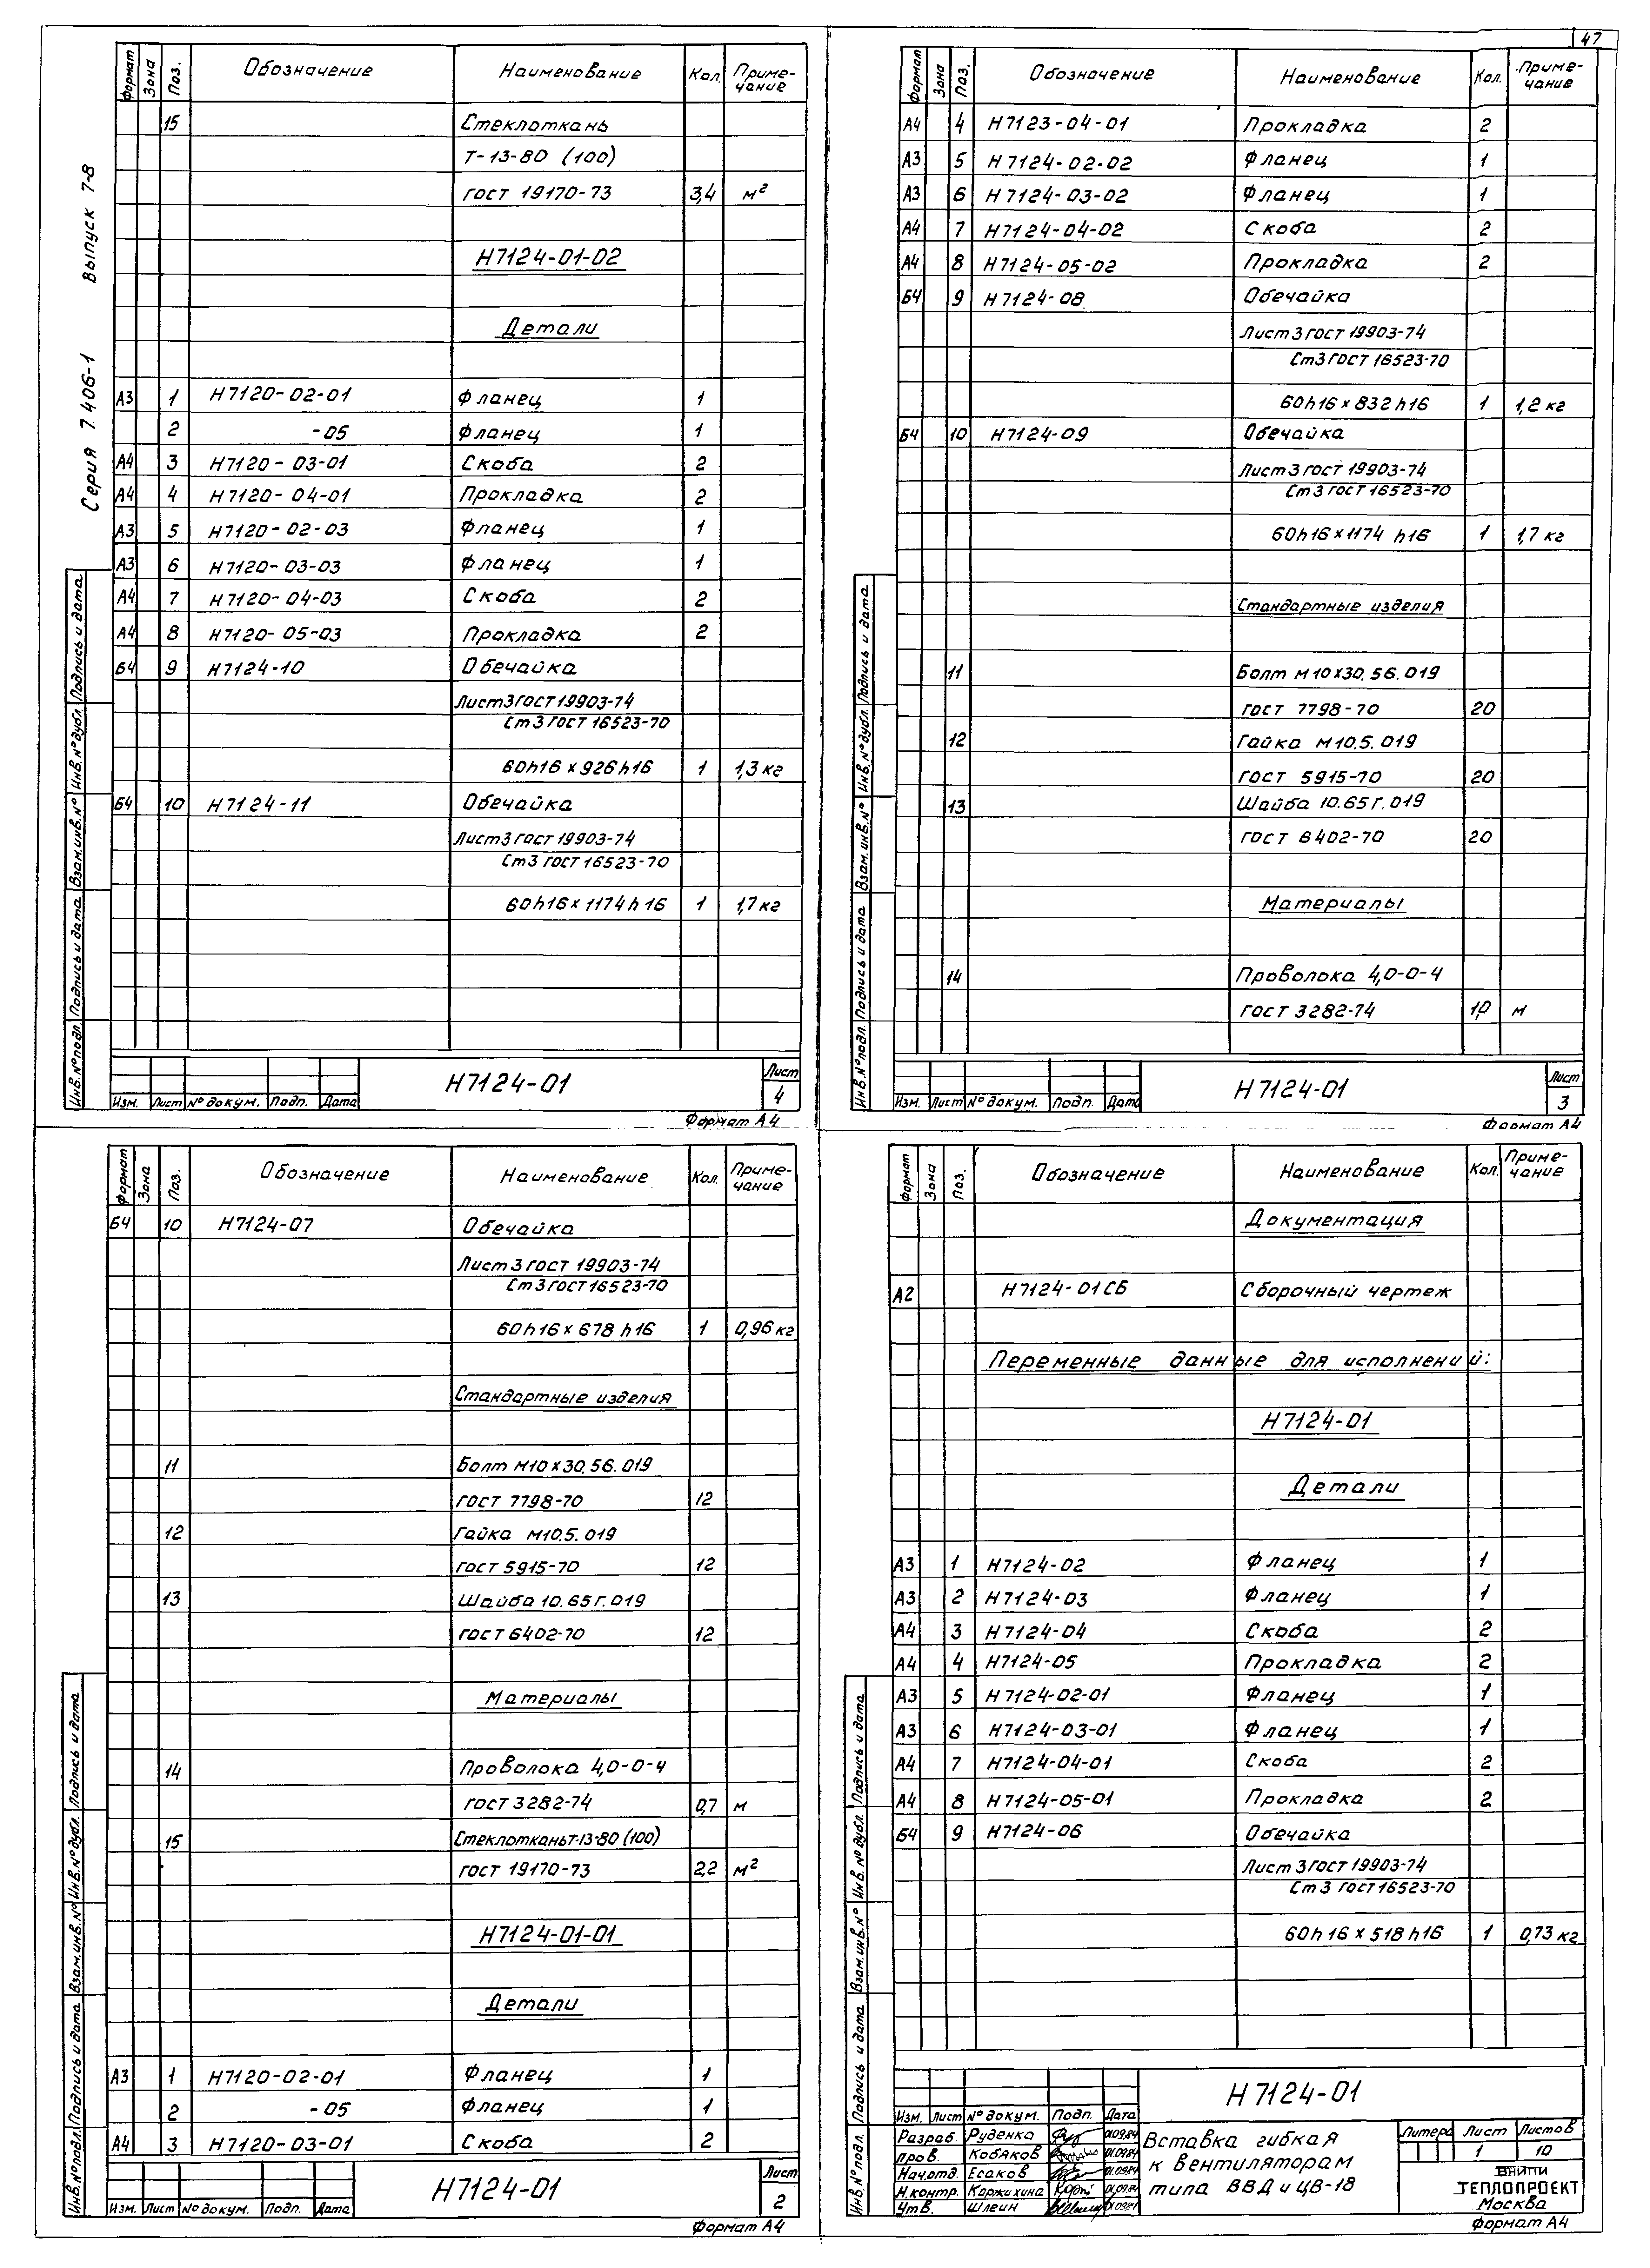 47
Серия 7.406-1 Выпуск 7-8
Формат Зона Поз. Обозначение Наименование Кол. Приме-
чание
15 Стеклоткань
Т-13-80 (100)
ГОСТ 19170-73 3,4 м²
Н7124-01-02
Детали
А3 1 Н7120-02-01 Фланец 1
2 -05 Фланец 1
А4 3 Н7120-03-01 Скоба 2
А4 4 Н7120-04-01 Прокладка 2
А3 5 Н7120-02-03 Фланец 1
А3 6 Н7120-03-03 Фланец 1
А4 7 Н7120-04-03 Скоба 2
А4 8 Н7120-05-03 Прокладка 2
Б4 9 Н7124-10 Обечайка
Лист 3 ГОСТ 19903-74
Ст3 ГОСТ 16523-70
60h16 х 926h16 1 1,3 кг
Б4 10 Н7124-11 Обечайка
Лист 3 ГОСТ 19903-74
Ст3 ГОСТ 16523-70
60h16 х 1174h16 1 1,7 кг
Инв. № подл. Подпись и дата Взам. инв. № Инв. № дубл. Подпись и дата
Изм. Лист № докум. Подп. Дата
Н7124-01
Лист
4
Формат А4
Формат Зона Поз. Обозначение Наименование Кол. Приме-
чание
А4 4 Н7123-04-01 Прокладка 2
А3 5 Н7124-02-02 Фланец 1
А3 6 Н7124-03-02 Фланец 1
А4 7 Н7124-04-02 Скоба 2
А4 8 Н7124-05-02 Прокладка 2
Б4 9 Н7124-08 Обечайка
Лист 3 ГОСТ 19903-74
Ст3 ГОСТ 16523-70
60h16 х 832h16 1 1,2 кг
Б4 10 Н7124-09 Обечайка
Лист 3 ГОСТ 19903-74
Ст3 ГОСТ 16523-70
60h16 х 1174 h16 1 1,7 кг
Стандартные изделия
11 Болт М10х30.56.019
ГОСТ 7798-70 20
12 Гайка М10.5.019
ГОСТ 5915-70 20
13 Шайба 10.65Г.019
ГОСТ 6402-70 20
Материалы
14 Проволока 4,0-0-4
ГОСТ 3282-74 1,0 м
Инв. № подл. Подпись и дата Взам. инв. № Инв. № дубл. Подпись и дата
Изм. Лист № докум. Подп. Дата
Н7124-01
Лист
3
Формат А4
Формат Зона Поз. Обозначение Наименование Кол. Приме-
чание
Б4 10 Н7124-07 Обечайка
Лист 3 ГОСТ 19903-74
Ст3 ГОСТ 16523-70
60h16 х 678 h16 1 0,96 кг
Стандартные изделия
11 Болт М10 х 30.56.019
ГОСТ 7798-70 12
12 Гайка М10.5.019
ГОСТ 5915-70 12
13 Шайба 10.65Г.019
ГОСТ 6402-70 12
Материалы
14 Проволока 4,0-0-4
ГОСТ 3282-74 0,7 м
15 Стеклоткань Т-13-80 (100)
ГОСТ 19170-73 2,2 м²
Н7124-01-01
Детали
А3 1 Н7120-02-01 Фланец 1
2 -05 Фланец 1
А4 3 Н7120-03-01 Скоба 2
Инв. № подл. Подпись и дата Взам. инв. № Инв. № дубл. Подпись и дата
Изм. Лист № докум. Подп. Дата
Н7124-01
Лист
2
Формат А4
Формат Зона Поз. Обозначение Наименование Кол. Приме-
чание
Документация
А2 Н7124-01СБ Сборочный чертеж
Переменные данные для исполнений:
Н7124-01
Детали
А3 1 Н7124-02 Фланец 1
А3 2 Н7124-03 Фланец 1
А4 3 Н7124-04 Скоба 2
А4 4 Н7124-05 Прокладка 2
А3 5 Н7124-02-01 Фланец 1
А3 6 Н7124-03-01 Фланец 1
А4 7 Н7124-04-01 Скоба 2
А4 8 Н7124-05-01 Прокладка 2
Б4 9 Н7124-06 Обечайка
Лист 3 ГОСТ 19903-74
Ст3 ГОСТ 16523-70
60h16 х 518 h16 1 0,73 кг
Инв. № подл. Подпись и дата Взам. инв. № Инв. № дубл. Подпись и дата
Н7124-01
Изм. Лист № докум. Подп. Дата
Разраб. Руденко 01.09.84
Пров. Кобяков 01.09.84
Нач.отд. Есаков 01.09.84
Н.контр. Коржихина 01.09.84
Утв. Шлеин 01.09.84
Вставка гибкая
к вентиляторам
типа ВВД и ЦВ-18
Литера Лист Листов
1 10
ВНИПИ
ТЕПЛОПРОЕКТ
Москва
Формат А4